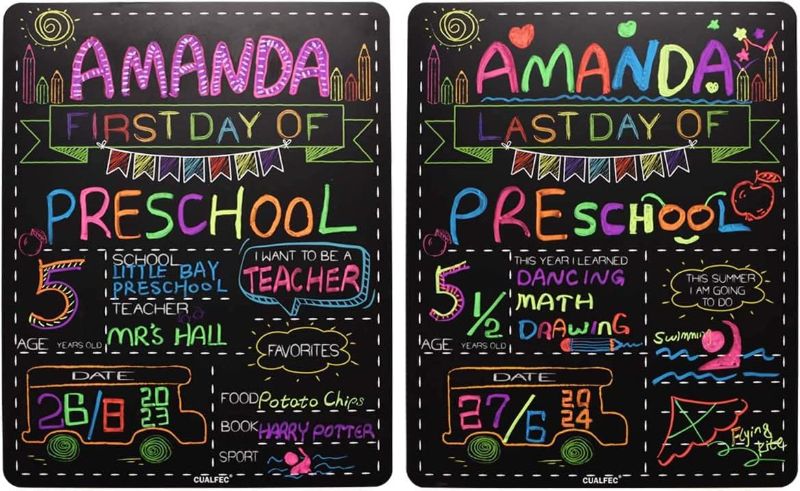 AMANDA
FIRST DAY OF
PRESCHOOL
5
AGE YEARS OLD
SCHOOL
LITTLE BAY
PRESCHOOL
TEACHER
MR'S HALL
I WANT TO BE A
TEACHER
FAVORITES
FOOD Potato Chips
BOOK HARRY POTTER
SPORT
DATE
26/8 2023
CUALFEC
AMANDA
LAST DAY OF
PRESCHOOL
5 1/2
AGE YEARS OLD
THIS YEAR I LEARNED
DANCING
MATH
DRAWING
THIS SUMMER
I AM GOING
TO DO
Swimming
Flying
kite
DATE
27/6 2024
CUALFEC